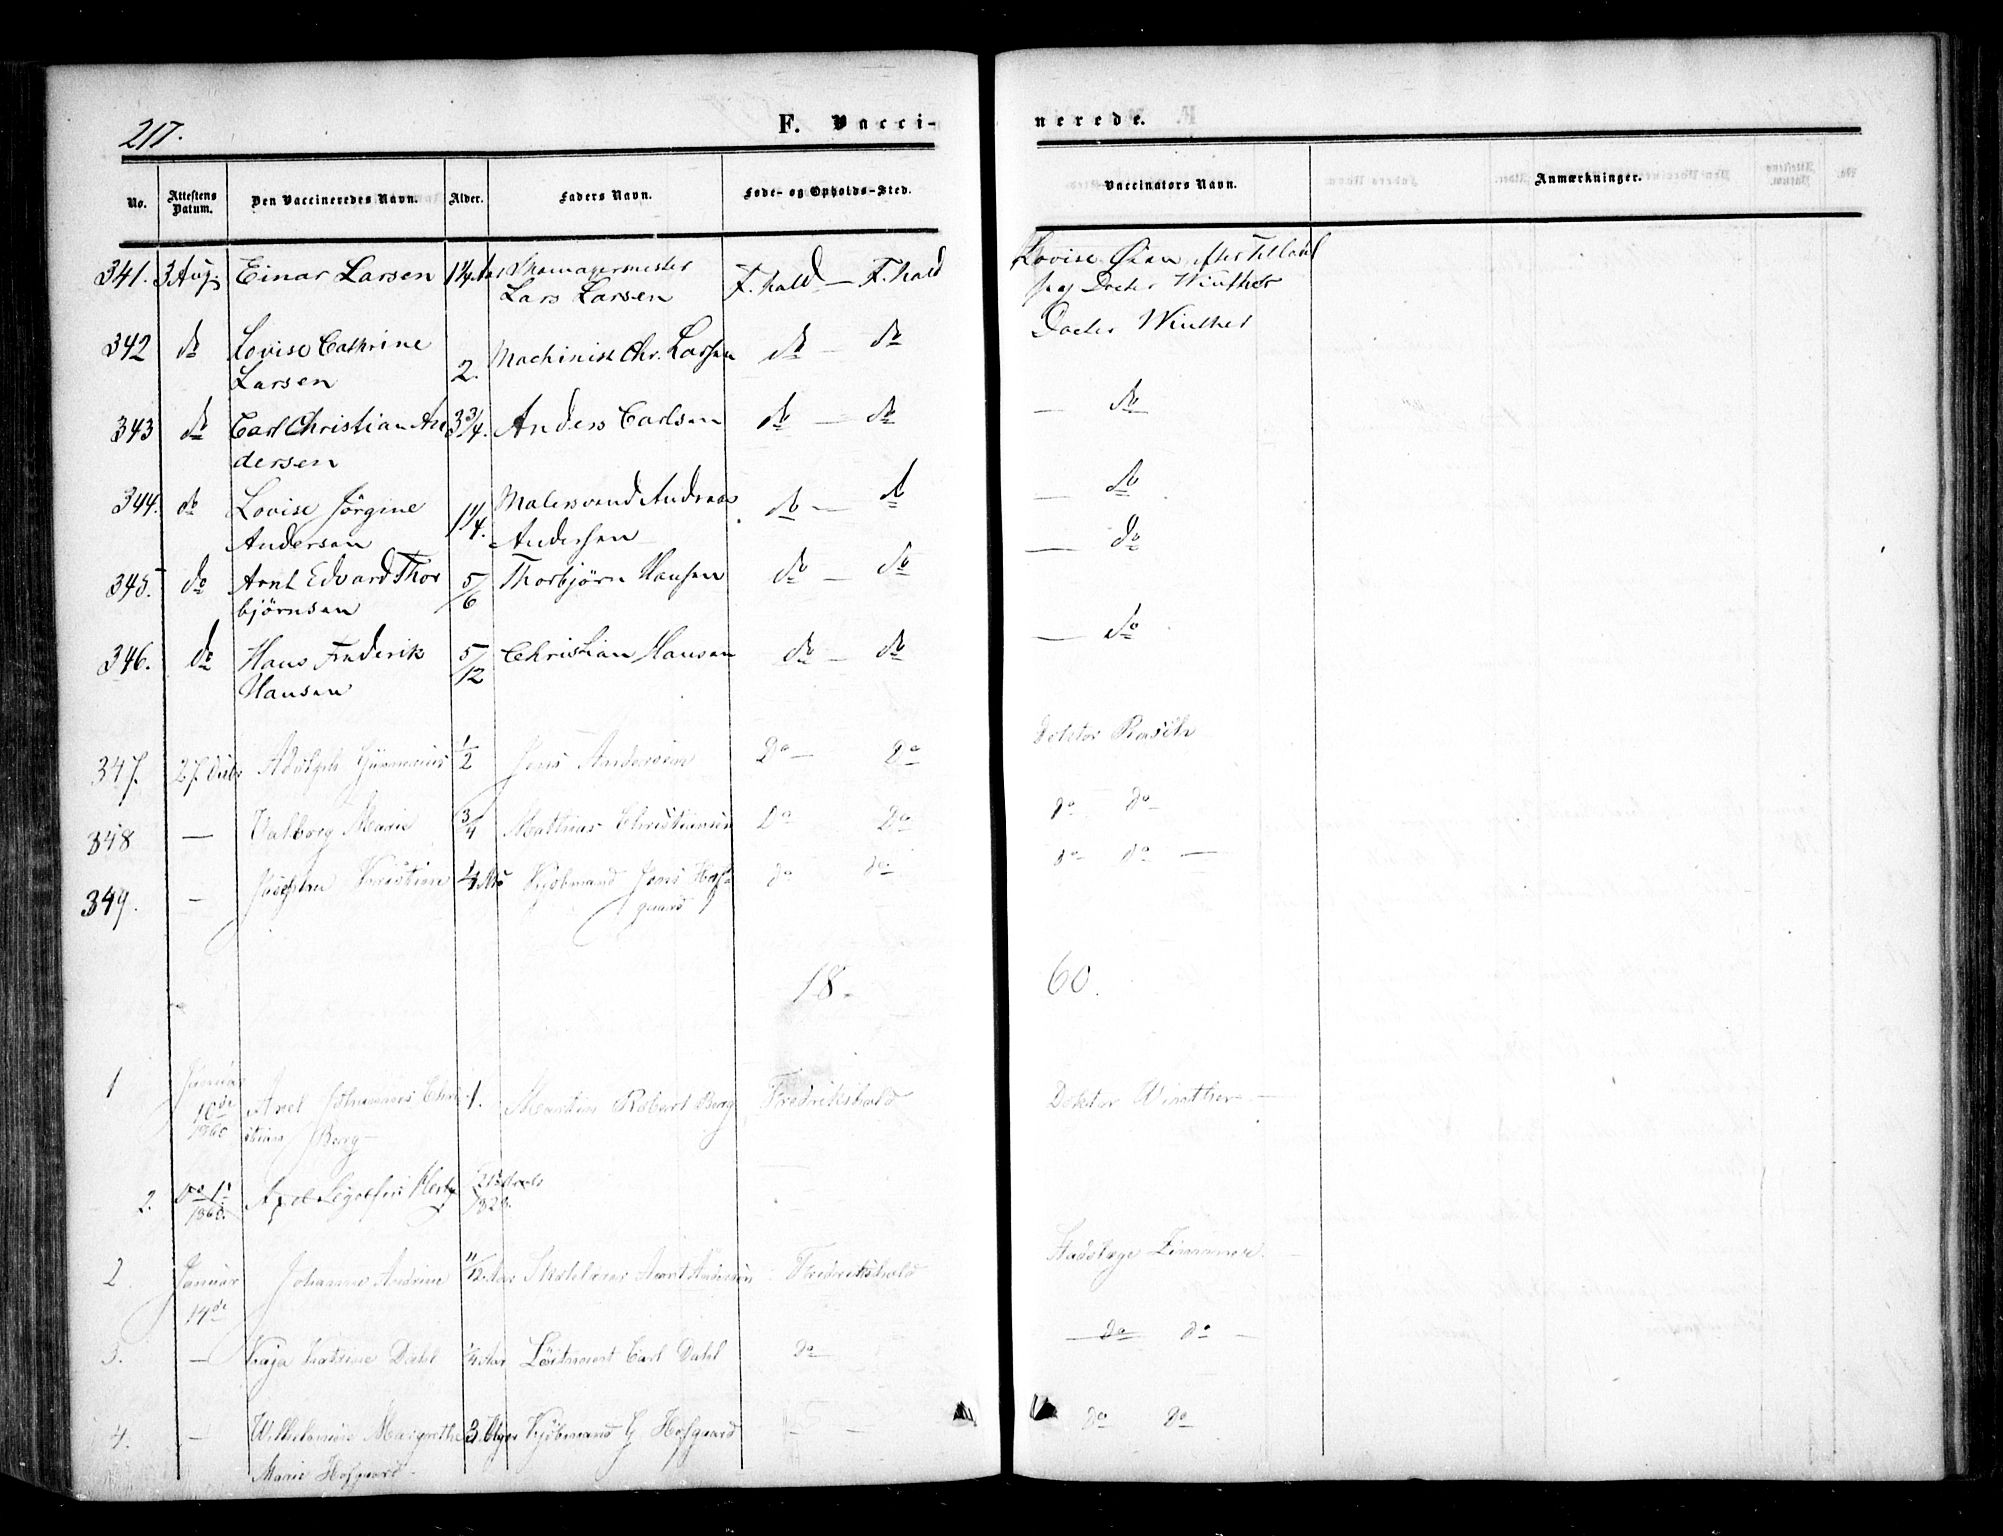 217.
F. Vacci-
nerede.
No.
Attestens Datum.
Den Vaccineredes Navn.
Alder.
Faders Navn.
Føde- og Opholds-Sted.
Vaccinators Navn.
Anmærkninger.
341. 3 Aug. Einar Larsen 1 1/4 Aar Skomagermester F.hald — F.hald Lovise
Lars Larsen Doctor Winther
342 do Lovise Cathrine Machinist Chr. Larsen do — do Doctor Winther
Larsen 2.
343 do Carl Christian An 3 3/4. Anders Carlsen do — do — do
dersen
344. do Lovise Jörgine 1 1/4. Malersvend Andreas do — do — do
Andersen Andersen
345. do Arnt Edvard Thor 5/6 Thorbjörn Hansen do — do — do
björnsen
346. do Hans Frederik 5/12 Christian Hansen do — do — do
Hansen
347. 27 Adolph 1/2 Jens Andersen Do — Do Doktor Rasch
348 — Valborg Marie 3/4 Mathias Christiansen Do Do do do
349. — Josephine Kristine 4 Kjöbmand Jens Hof do do do do —
gaard
18. 60.
1 Januar
10de Axel Johannes Chri 1. Martin Robert Berg Fredrikshald Doktor Winther —
1860 stian Berg —
2. Do 1860. Axel 1828.
2 Januar Johanne Andrine 11/12 Aar Arnt Andersen Fredrikshald Stadslæge
14de
3. — Kaja Katrine Dahl 1/4 Aar Löitnant Carl Dahl do — do do —
4. — Wilhelmine Margrethe 3 Uger Kjöbmand G Hofgaard do do
Marie Hofgaard.